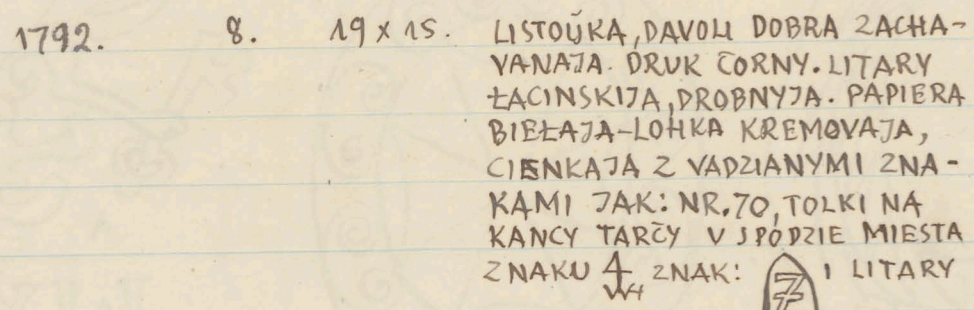 1792. 8. 19 x 15. LISTOŬKA, DAVOLI DOBRA ZACHA-
VANAJA. DRUK ČORNY. LITARY
ŁACINSKIJA, DROBNYJA. PAPIERA
BIEŁAJA-LOHKA KREMOVAJA,
CIENKAJA Z VADZIANYMI ZNA-
KAMI JAK: NR. 70, TOLKI NA
KANCY TARČY V SPODZIE MIESTA
ZNAKU ZNAK: I LITARY